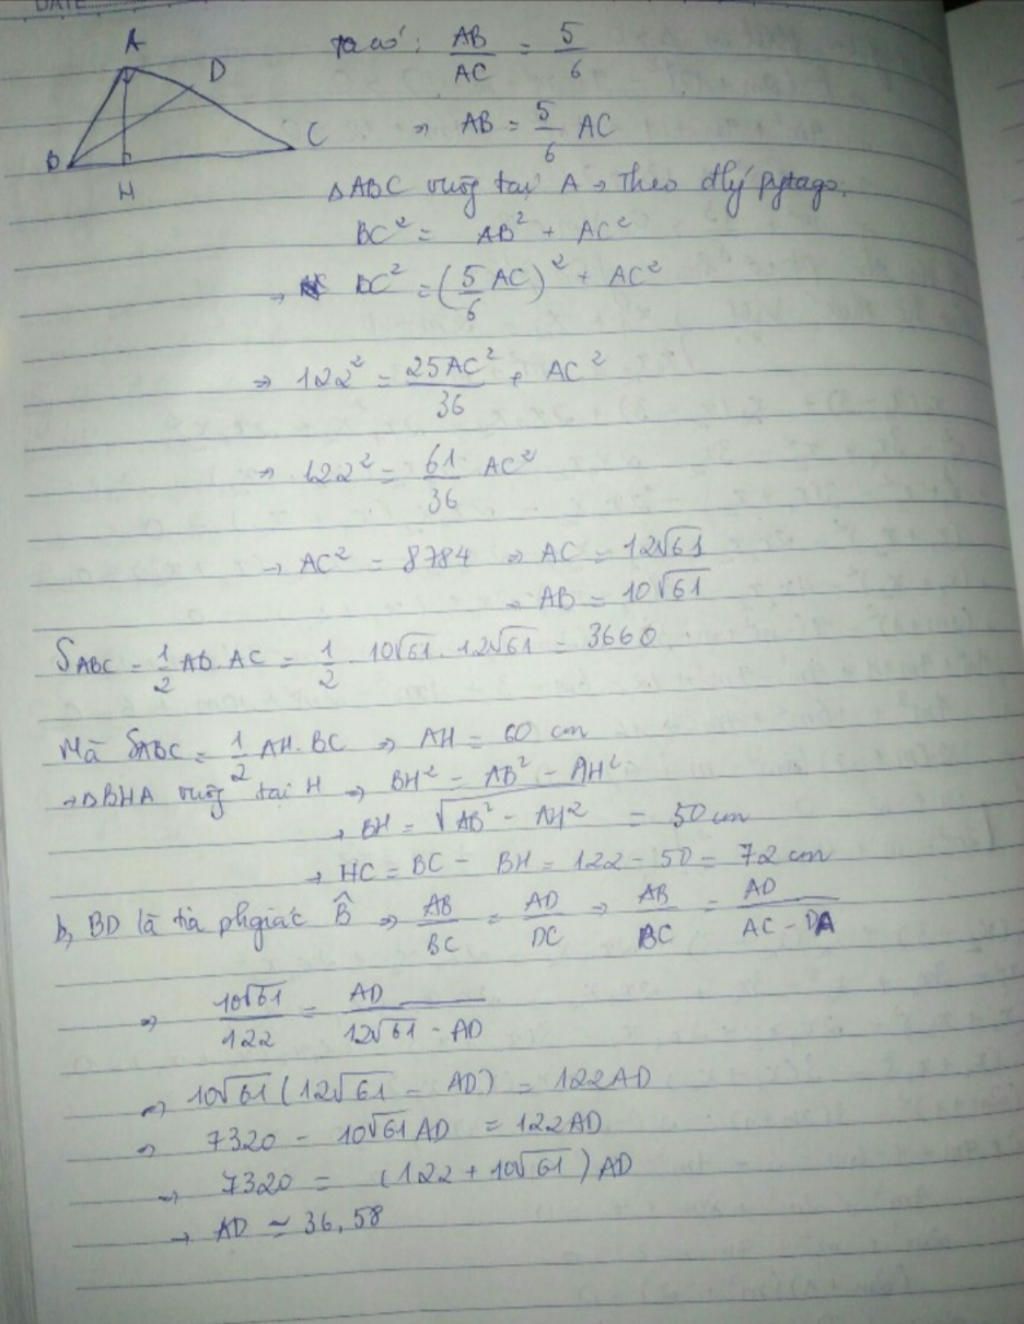 DATE
A
D
B
C
H
Ta có: AB/AC = 5/6
⇒ AB = 5/6 AC
ΔABC vuông tại A → Theo đlý pytago.
BC² = AB² + AC²
→ BC² = (5/6 AC)² + AC²
⇒ 122² = 25AC²/36 + AC²
⇒ 122² = 61/36 AC²
→ AC² = 8784 ⇒ AC = 12√61
⇒ AB = 10√61
SABC = 1/2 AB. AC = 1/2 . 10√61. 12√61 = 3660.
Mà SABC = 1/2 AH. BC ⇒ AH = 60 cm
→ ΔBHA vuông tại H ⇒ BH² = AB² - AH²
→ BH = √AB² - AH² = 50 cm
→ HC = BC - BH = 122 - 50 = 72 cm
b, BD là tia phgiác B̂ ⇒ AB/BC = AD/DC ⇒ AB/BC = AD/AC - DA
⇒ 10√61/122 = AD/12√61 - AD
⇒ 10√61(12√61 - AD) = 122AD
⇒ 7320 - 10√61AD = 122AD
→ 7320 = (122 + 10√61)AD
→ AD ≃ 36,58